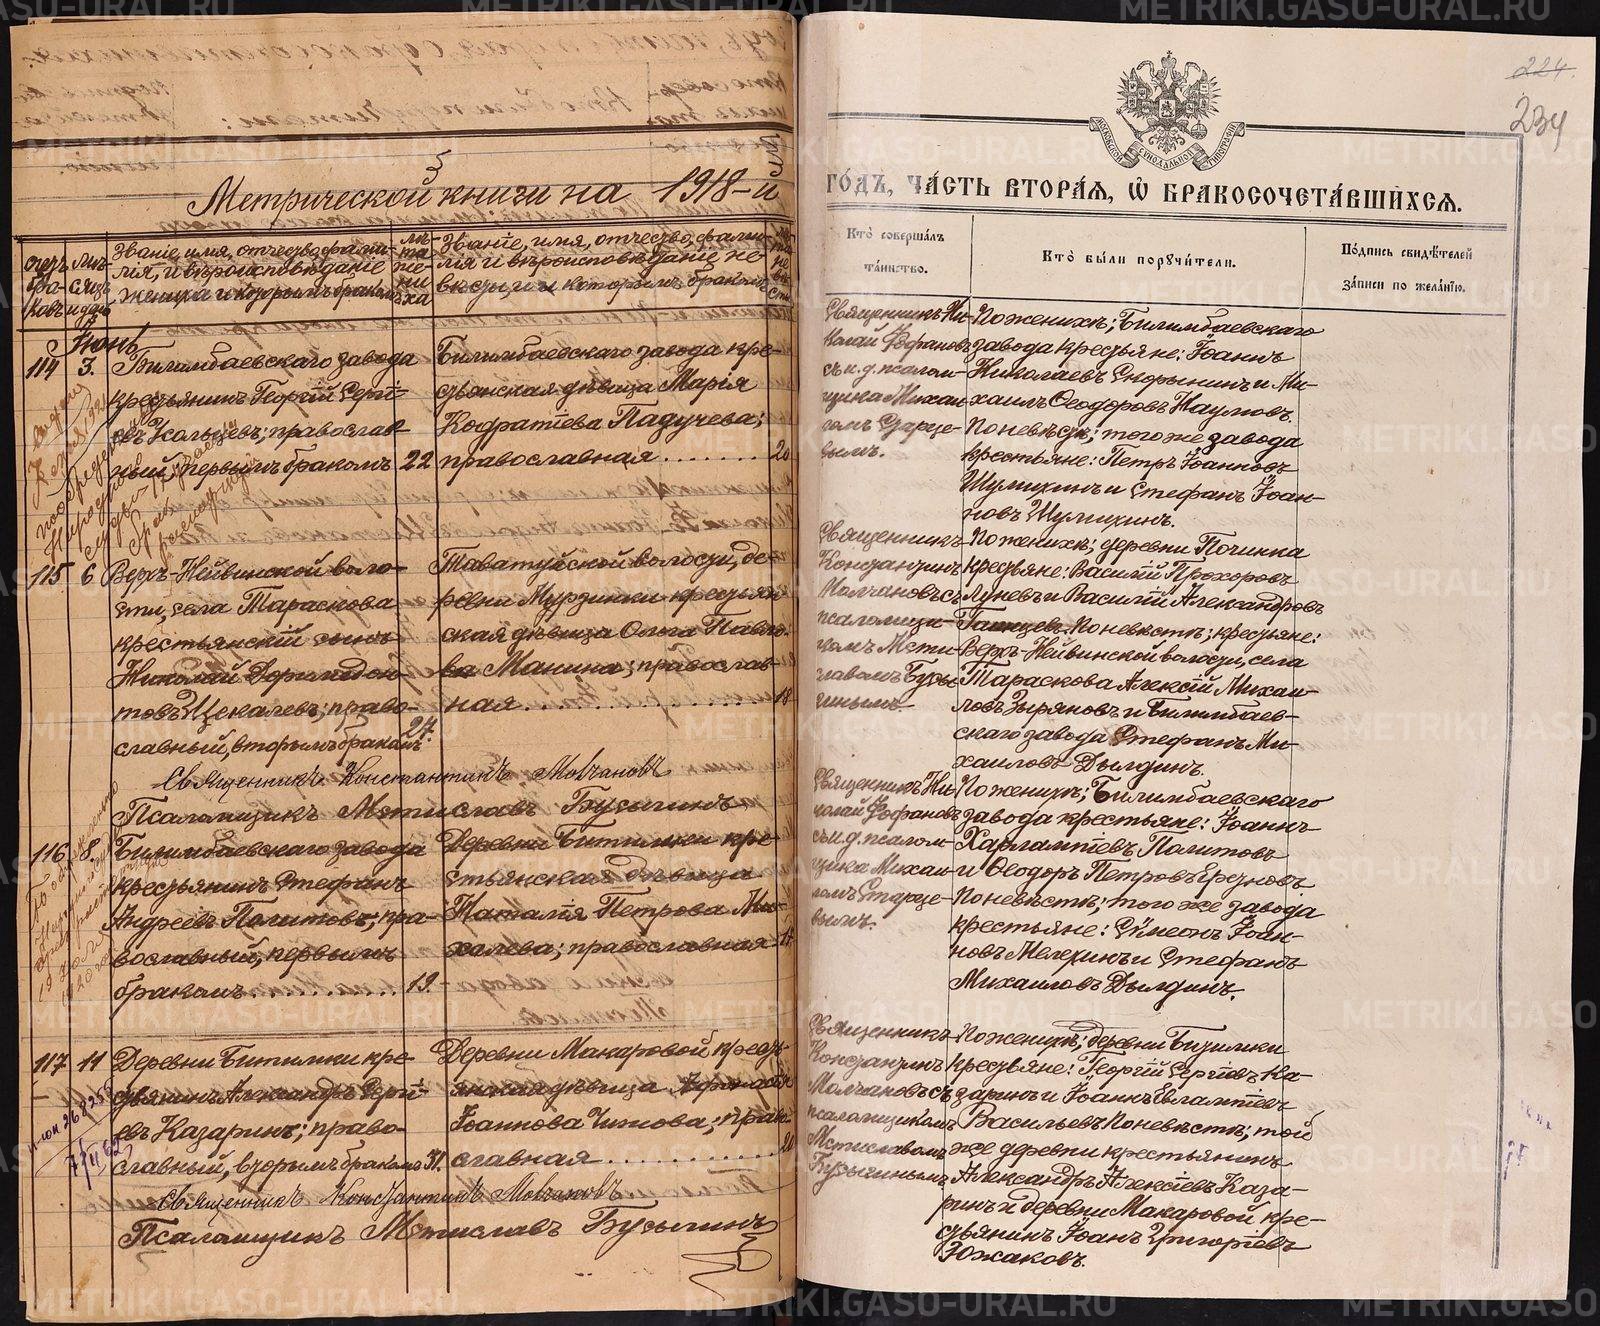 Метрической книги на 1918-й
счетъ бра- ковъ
мѣ- сяцъ и день
Званіе, имя, отчество, фами-
лія, и вѣроисповѣданіе
жениха и которымъ бракомъ
лѣ- та же- ни- ха
Званіе, имя, отчество, фами-
лія и вѣроисповѣданіе не-
весты, и которымъ бракомъ
Іюнь
114 3.
Билимбаевскаго завода
крестьянинъ Георгій Сергі-
евъ Кольцевъ; православ-
ный, первымъ бракомъ 22
Билимбаевскаго завода кре-
стьянская дѣвица Марія
Кодратіева Падучева;
православная . . . . . . . 20
115 6
Верхъ-Нейвинской воло-
сти, села Тараскова
крестьянскій сынъ
Николай Доримедон-
товъ Щекалевъ; право-
славный, вторымъ бракомъ. 27.
Таватуйской волости, де-
ревни Мурзинки крестьян-
ская дѣвица Ольга Павло-
ва Манина; православ-
ная . . . . . . . 18
Священникъ Константинъ Молчановъ
Псаломщикъ Мстиславъ Бузыгинъ
116 8.
Билимбаевскаго завода
крестьянинъ Стефанъ
Андреевъ Политовъ; пра-
вославный, первымъ
бракомъ . . . . . . . 19.
Деревни Битимки кре-
стьянская дѣвица
Наталія Петрова Ми-
халева; православная
117 11
Деревни Битимки кре-
стьянинъ Александръ Сергі-
евъ Казаринъ; право-
славный, вторымъ бракомъ 31.
Деревни Макаровой кресть-
янская дѣвица
Іоаннова Чижова; право-
славная . . . . . . . 20
Священникъ Константинъ Молчановъ
Псаломщикъ Мстиславъ Бузыгинъ
224.
234
МОСКОВСКОЙ СУНОДАЛЬНОЙ ТИПОГРАФІИ
ГОДЪ, ЧАСТЬ ВТОРАЯ, Ѡ БРАКОСОЧЕТАВШИХСЯ.
Кто совершалъ
таинство.
Кто были поручители.
Подпись свидѣтелей
записи по желанію.
Священникъ Ни-
колай Фофановъ
съ и. д. псалом-
щика Михаи-
ломъ Старце-
вымъ.
По женихѣ; Билимбаевскаго
завода крестьяне: Іоаннъ
Николаевъ Скорынинъ и Ми-
хаилъ Ѳеодоровъ Наумовъ.
По невѣстѣ; того же завода
крестьяне: Петръ Іоанновъ
Шулихинъ и Стефанъ Іоан-
новъ Шулихинъ.
Священникъ
Константинъ
Молчановъ съ
псаломщи-
комъ Мсти-
славомъ Бузы-
гинымъ.
По женихѣ; деревни Починка
крестьяне: Василій Прохоровъ
Луневъ и Василій Александровъ
По невѣстѣ; крестьяне:
Верхъ-Нейвинской волости, села
Тараскова Алексій Михаи-
ловъ Зыряновъ и Билимбаев-
скаго завода Стефанъ Ми-
хаиловъ Дылдинъ.
Священникъ Ни-
колай Фофановъ
съ и. д. псалом-
щика Михаи-
ломъ Старце-
вымъ.
По женихѣ; Билимбаевскаго
завода крестьяне: Іоаннъ
Харлампіевъ Политовъ
и Ѳеодоръ Петровъ
По невѣстѣ; того же завода
крестьяне: Сѵмеонъ Іоан-
новъ Мелехинъ и Стефанъ
Михаиловъ Дылдинъ.
Священникъ
Константинъ
Молчановъ съ
псаломщикомъ
Мстиславомъ
Бузыгинымъ
По женихѣ; деревни Битимки
крестьяне: Георгій Сергіевъ Ка-
заринъ и Іоаннъ Евлампіевъ
Васильевъ. По невѣстѣ; той
же деревни крестьянинъ
Александръ Алексіевъ Каза-
ринъ и деревни Макаровой кре-
стьянинъ Іоаннъ Григоріевъ
Южаковъ.
METRIKI.GASO-URAL.RU